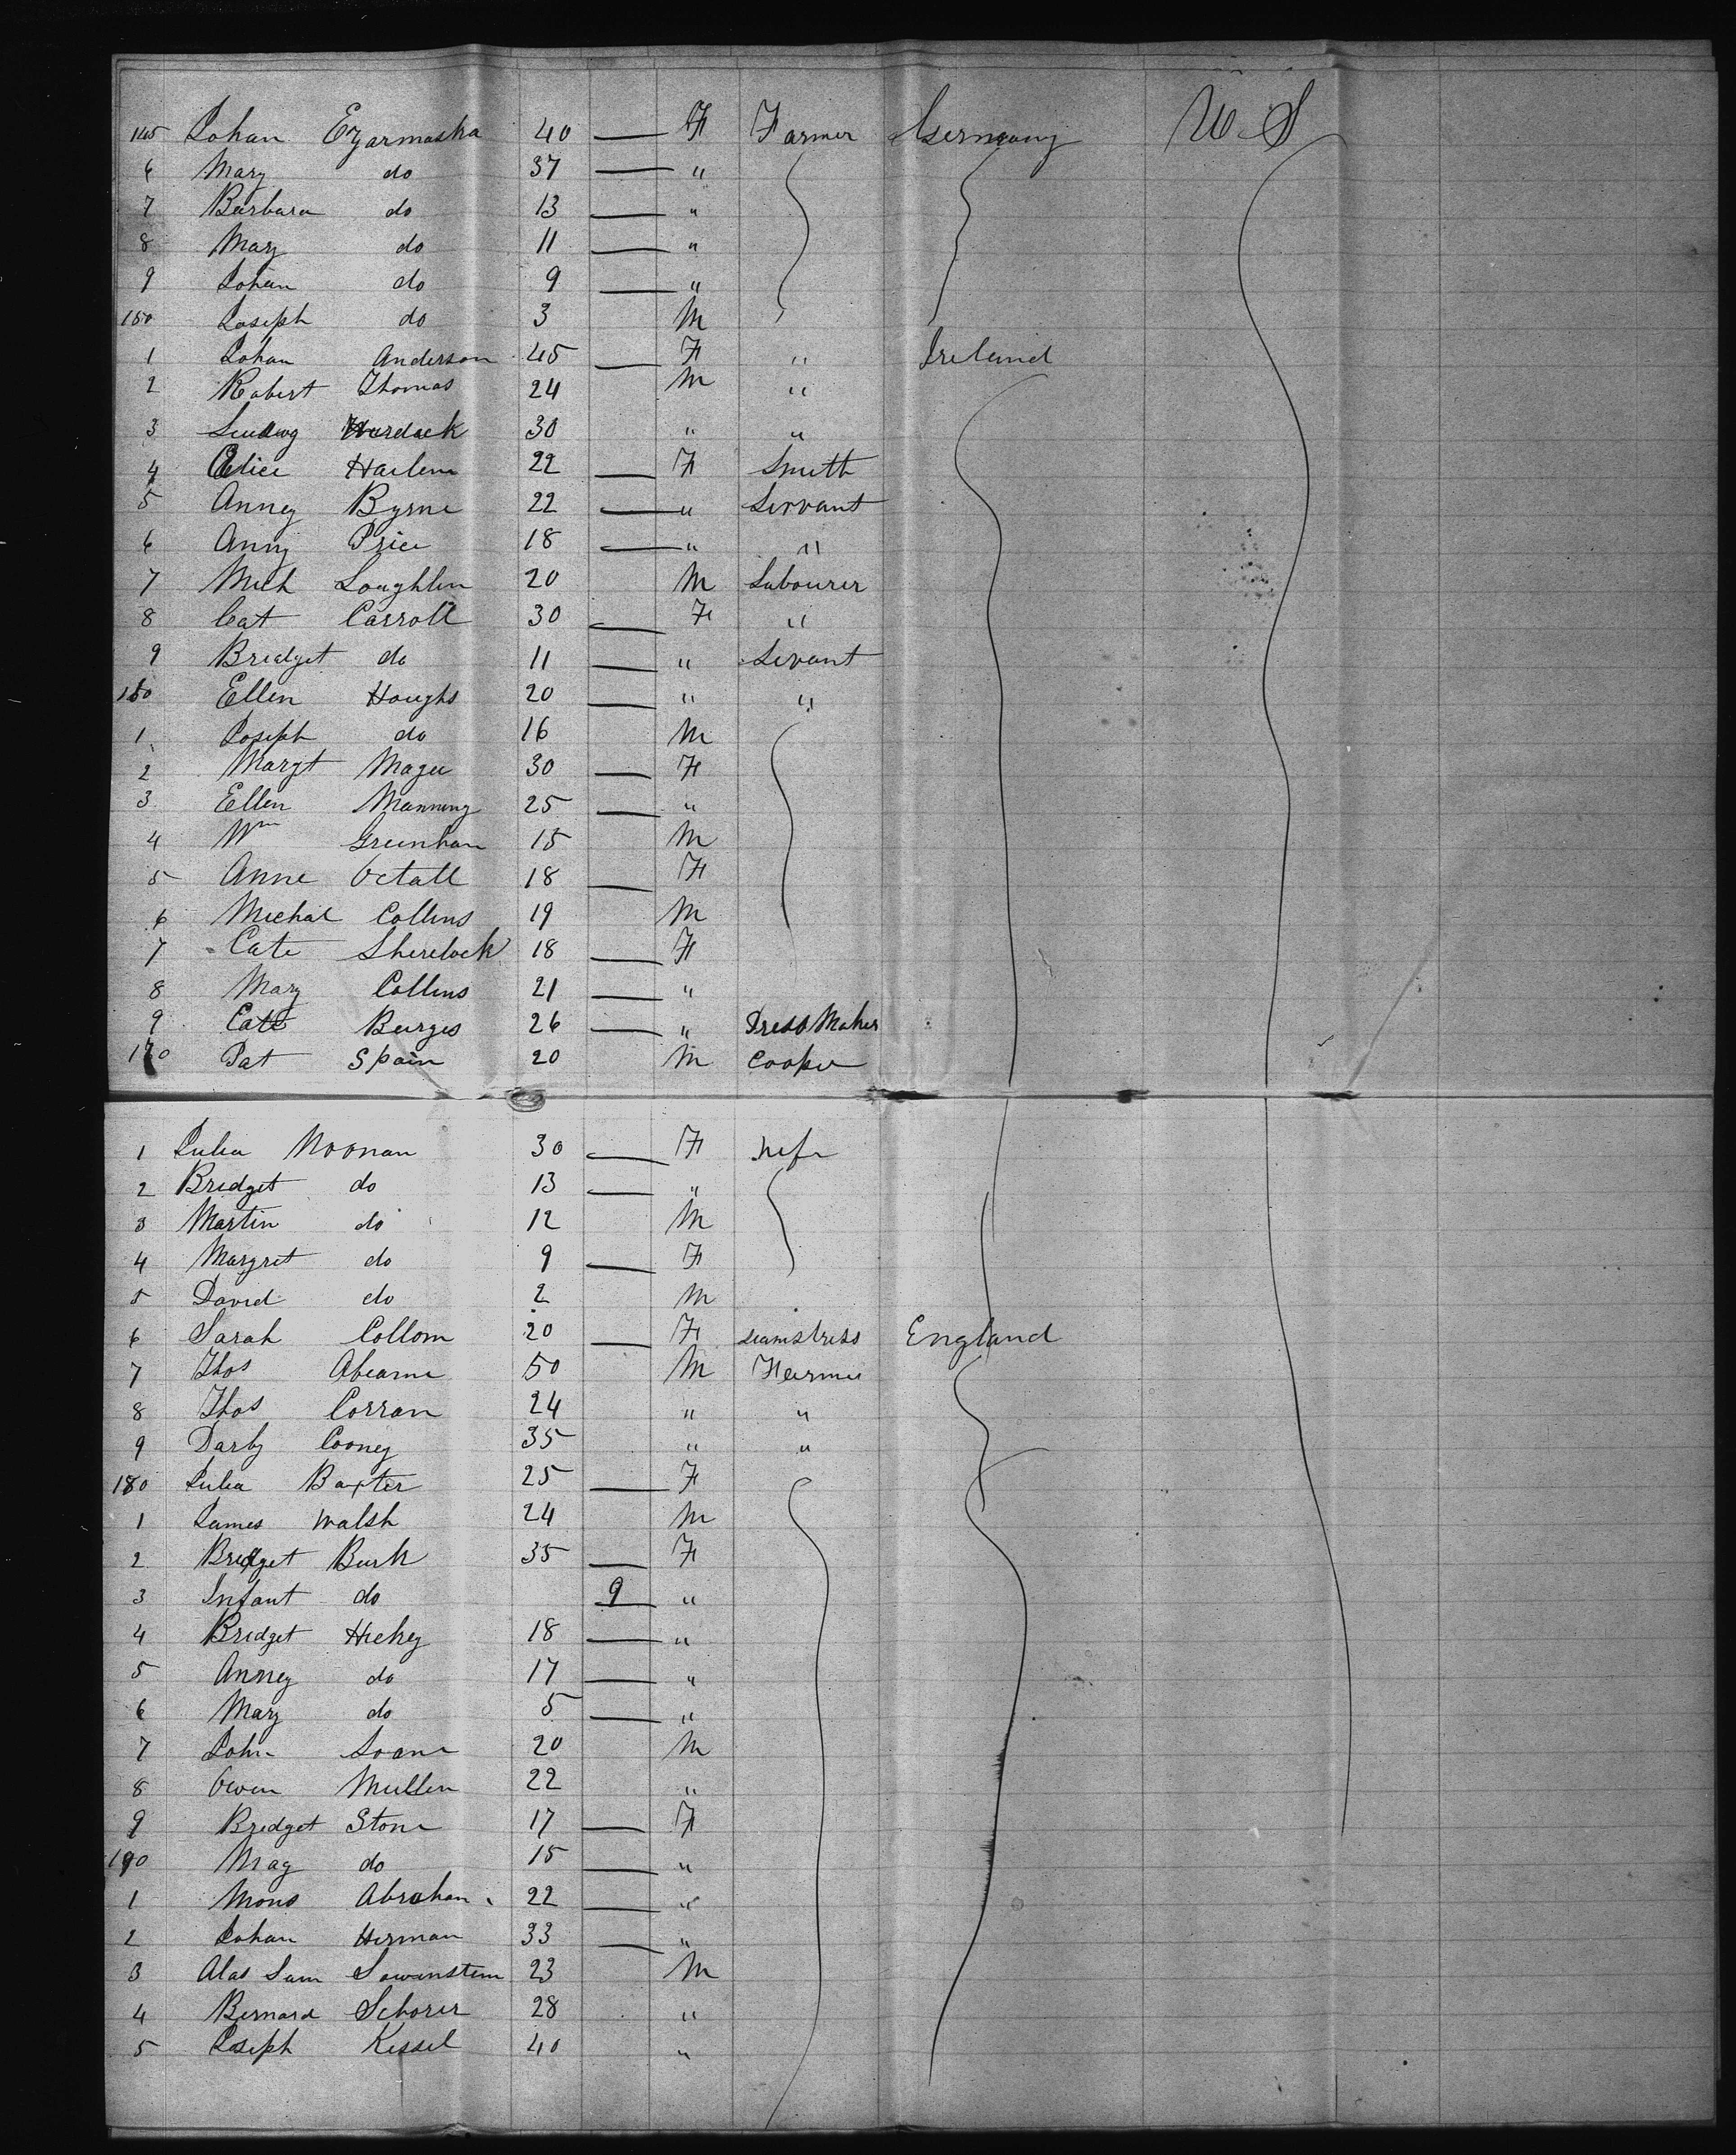 145 Johan Ezarmaska 40 — F Farmer Germany U. S
6 Mary do 37 — "
7 Barbara do 13 — "
8 Mary do 11 — "
9 Johan do 9 — "
150 Joseph do 3 M
1 Johan Anderson 45 — F " Ireland
2 Robert Thomas 24 M "
3 Ludwig 30 " "
4 Alice Harlem 22 — F Smith
5 Anney Byrne 22 — " Servant
6 Anny Price 18 — " "
7 Mich Loughlin 20 M Labourer
8 Cat Carroll 30 — F "
9 Bridget do 11 — " Servant
160 Ellen Houghs 20 — " "
1 Joseph do 16 M
2 Margt Magee 30 — F
3 Ellen Manning 25 — "
4 Wm Greenhan 15 M
5 Anne 18 — F
6 Michal Collins 19 M
7 Cate Sherelock 18 — F
8 Mary Collins 21 — "
9 Cate Burges 26 — " Dress Maker
170 Pat Spain 20 M Cooper
1 Julia Noonan 30 — F Wife
2 Bridget do 13 — "
3 Martin do 12 M
4 Margret do 9 — F
5 David do 2 M
6 Sarah Collom 20 — F seamstress England
7 Thos Ahearne 50 M Farmer
8 Thos Corran 24 " "
9 Darby Cooney 35 " "
180 Julia Baxter 25 — F
1 James Walsh 24 M
2 Bridget Burk 35 — F
3 Infant do 9 "
4 Bridget Hickey 18 — "
5 Anney do 17 — "
6 Mary do 5 — "
7 John Soane 20 M
8 Owen Mullen 22 "
9 Bridget Stone 17 — F
190 Mag do 15 — "
1 Mons Abraham 22 — "
2 Johan Herman 33 — "
3 Sam Lowenstein 23 M
4 Bernard Schorer 28 "
5 Joseph Kessel 40 "